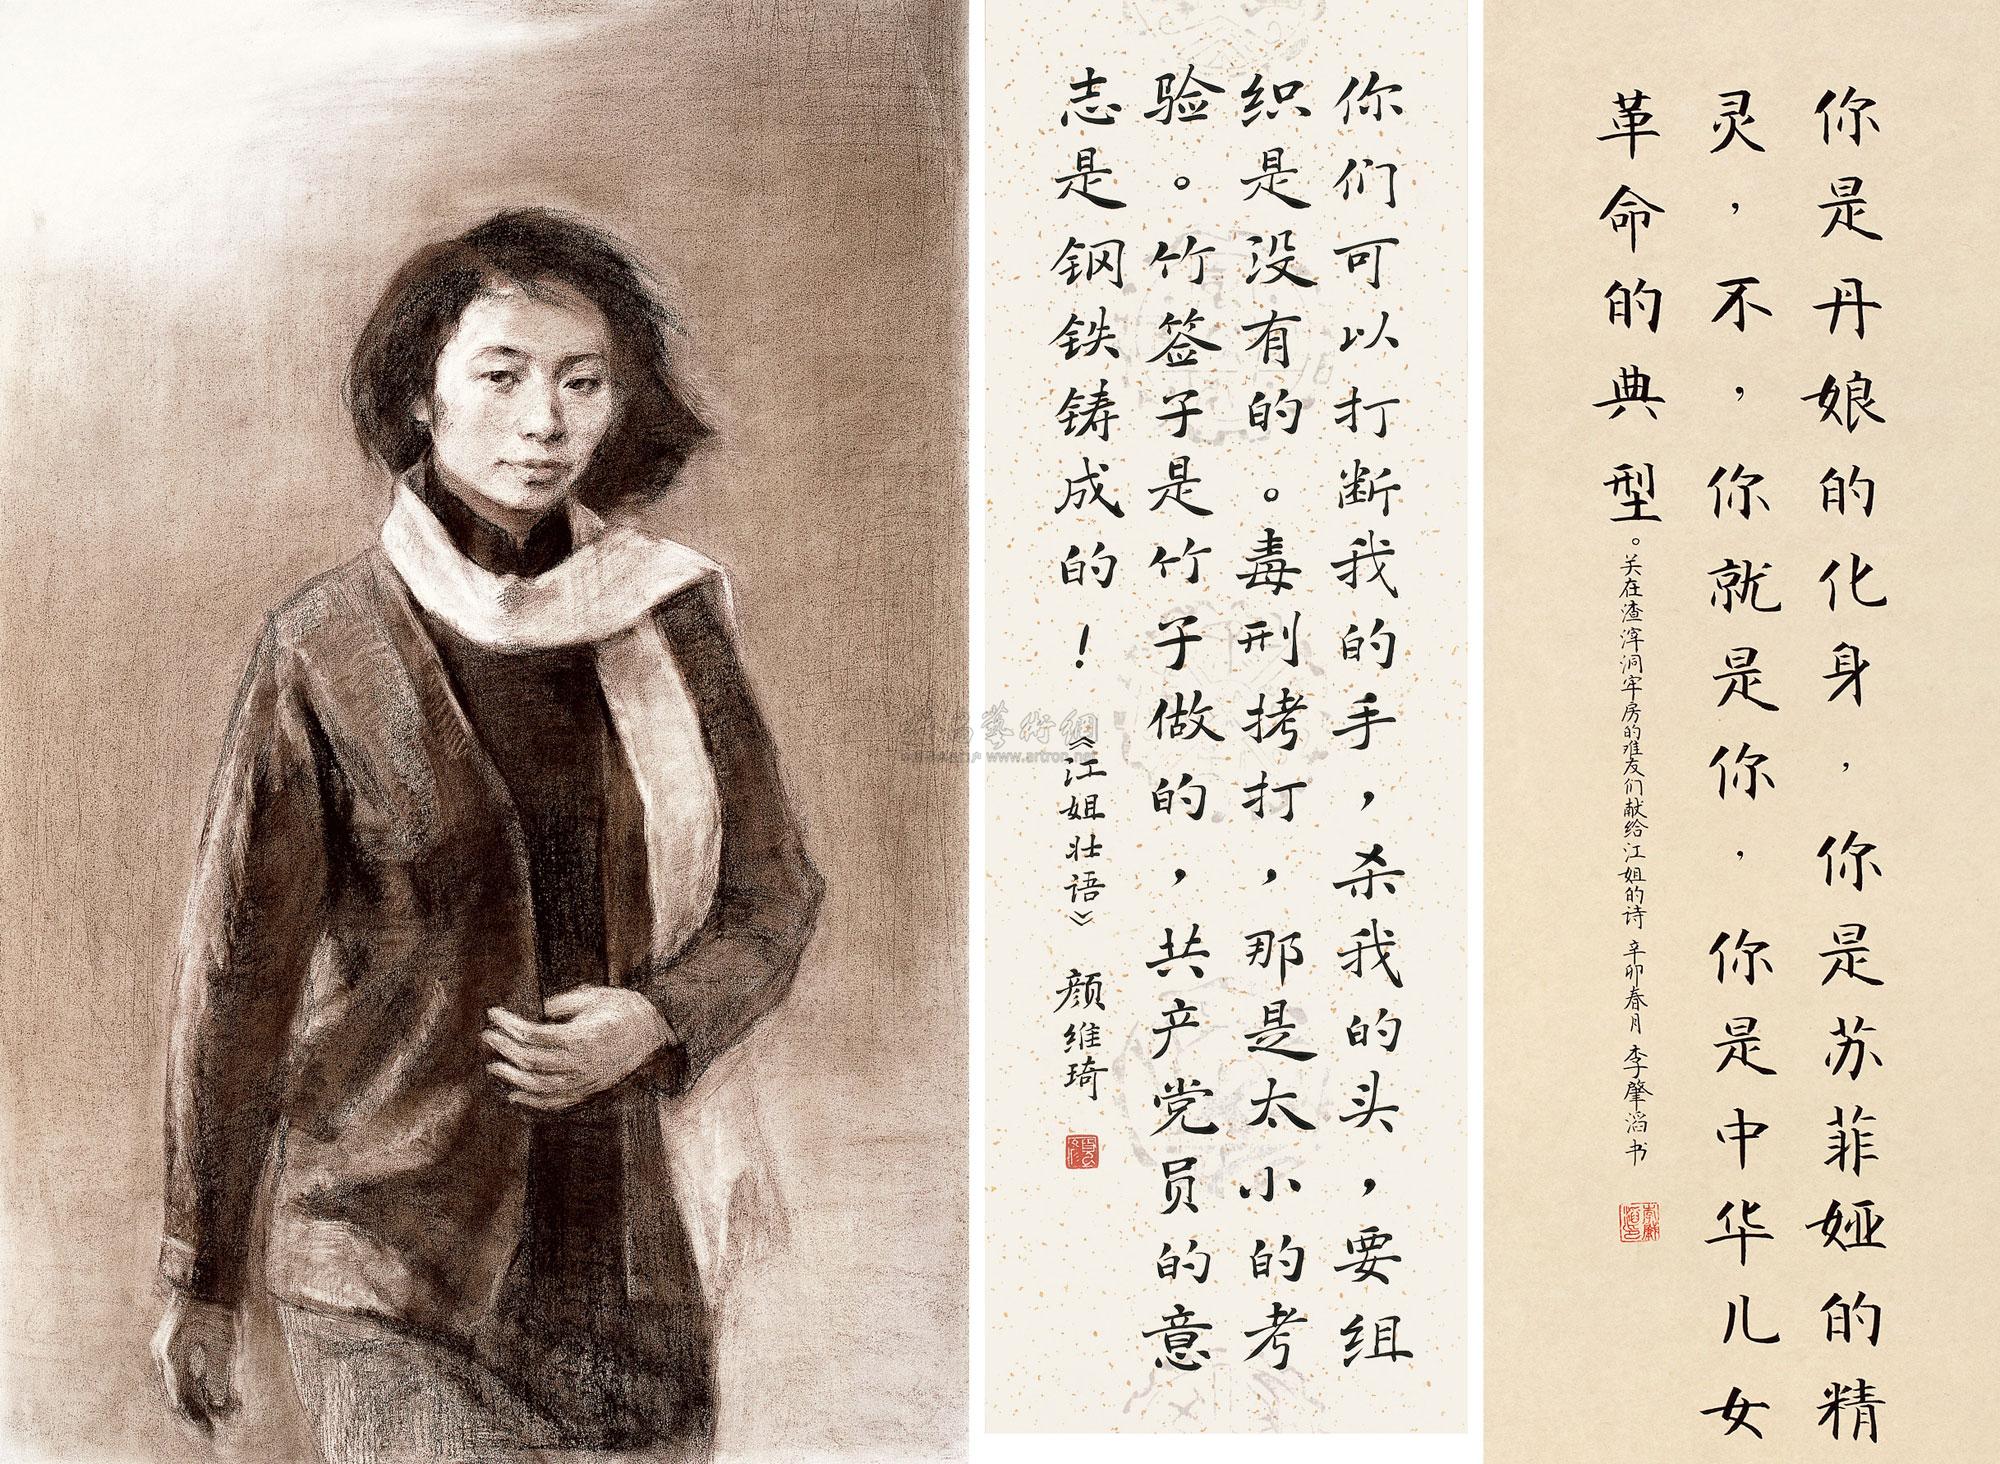 你们可以打断我的手，杀我的头，要组
织是没有的。毒刑拷打，那是太小的考
验。竹签子是竹子做的，共产党员的意
志是钢铁铸成的！
《江姐壮语》 颜维琦
你是丹娘的化身，你是苏菲娅的精
灵，不，你就是你，你是中华儿女
革命的典型。
关在渣滓洞牢房的难友们献给江姐的诗 辛卯春月 李肇滔书
藝術網
www.artron.net